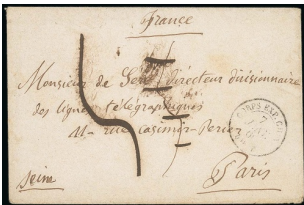 France
Monsieur de Seré directeur divisionnaire
des lignes télégraphiques
11 - rue Casimir-Perier
Paris
Seine